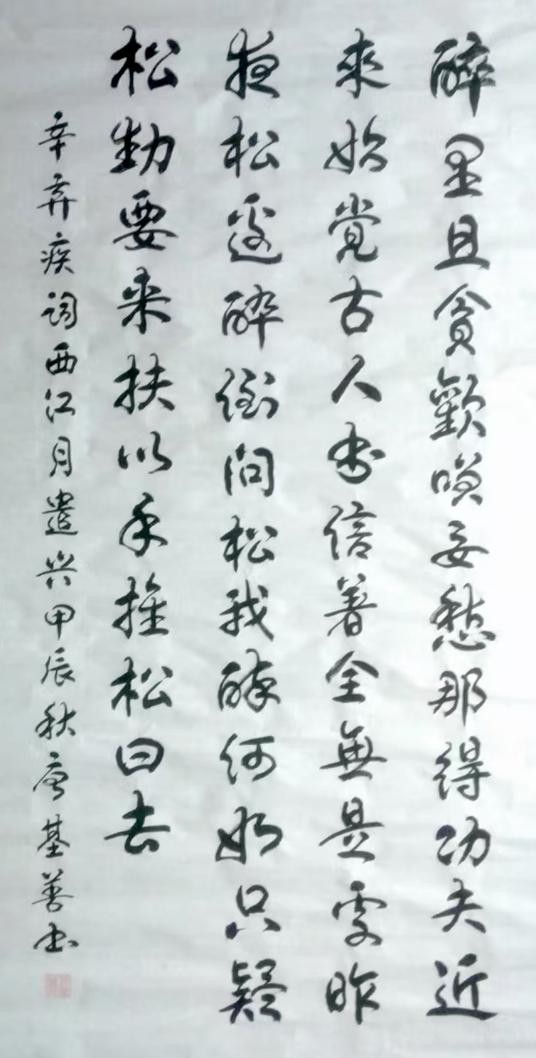 醉里且貪歡咲要愁那得功夫近
來始觉古人书信著全無是處昨
夜松邊醉倒問松我醉何如只疑
松動要来扶以手推松曰去
辛弃疾词西江月遣兴甲辰秋唐基善书